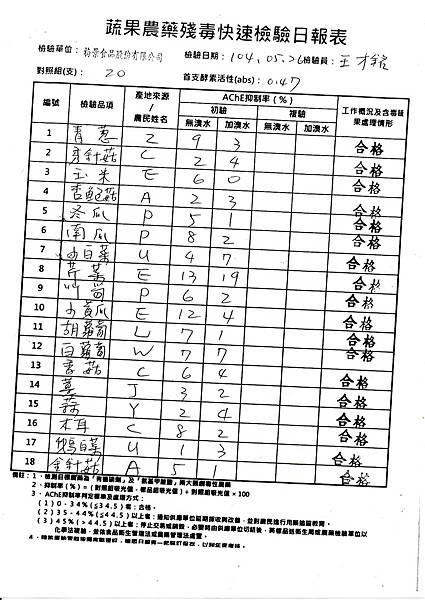 蔬果農藥殘毒快速檢驗日報表
檢驗單位：裕景食品股份有限公司 檢驗日期：104.05.26 檢驗員：王
對照組(支)：20 首支酵素活性(abs)：0.47
編號 檢驗品項 產地來源/農民姓名 AChE抑制率（%） 工作概況及含毒蔬果處理情形
初驗 複驗
無溴水 加溴水 無溴水 加溴水
1 青蔥 Z 9 3 合格
2 金針菇 C 2 4 合格
3 玉米 E 6 0 合格
4 杏鮑菇 A 2 3 合格
5 冬瓜 P 5 1 合格
6 南瓜 P 8 2 合格
7 小白菜 U 4 7 合格
8 芹菜 E 13 19 合格
9 P 6 2 合格
10 小黃瓜 E 12 4 合格
11 胡蘿蔔 L 7 1 合格
12 白蘿蔔 W 7 7 合格
13 香菇 C 6 4 合格
14 薑 J 3 2 合格
15 蒜 Y 2 4 合格
16 木耳 C 8 2 合格
17 鵝白菜 U 1 3 合格
18 金針菇 A 5 1 合格
備註：1．檢測目標農藥為「有機磷劑」及「氨基甲酸鹽」兩大類劇毒性農藥
2．抑制率（%）=（對照組吸光值－樣品組吸光值）÷對照組吸光值×100
3．AChE抑制率判定標準及處理方式：
(1) 0-34%(≦34.5)者：合格。
(2) 35-44%(≦44.5)以上者：通知供應單位延期採收與改善，並對農民進行用藥追蹤教育。
(3) 45%(>44.5)以上者：停止交易或銷毀，必要時由供應單位切結後，將樣品送衛生局或農藥檢驗單位以
化學法複驗，並依食品衛生管理法或農藥管理法處置。